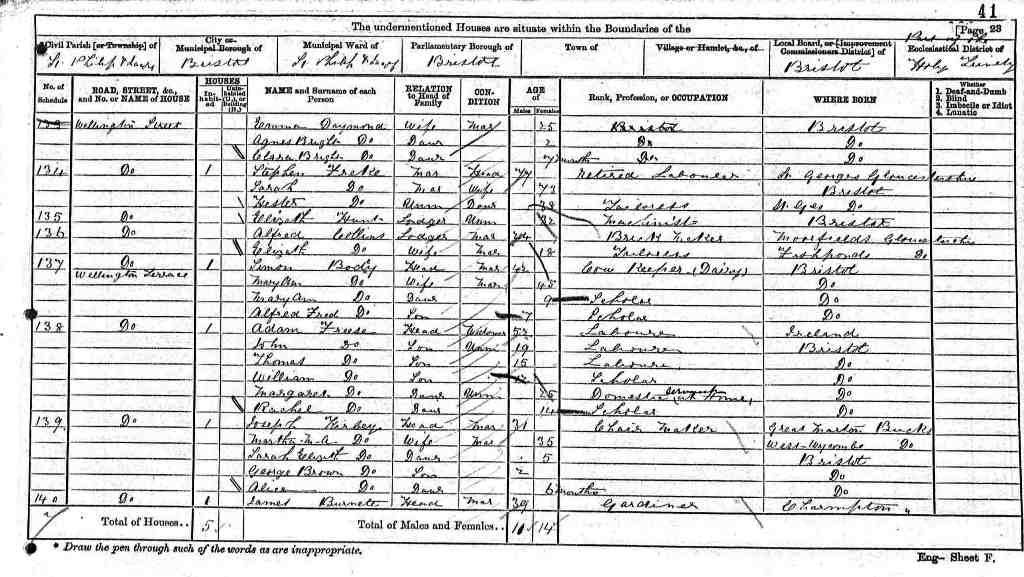 41
The undermentioned Houses are situate within the Boundaries of the
[Page, 23
Civil Parish [or Township] of
City or Municipal Borough of
Municipal Ward of
Parliamentary Borough of
Town of
Village or Hamlet, &c., of
Local Board, or [Improvement Commissioners District] of
Part of the
Ecclesiastical District of
St. Philip & Jacob Bristol St. Philip & Jacob Bristol Bristol Holy Trinity
No. of Schedule
ROAD, STREET, &c., and No. or NAME of HOUSE
HOUSES
Inhabited
Uninhabited (U.), or Building (B.)
NAME and Surname of each Person
RELATION to Head of Family
CONDITION
AGE of
Males Females
Rank, Profession, or OCCUPATION
WHERE BORN
Whether
1. Deaf-and-Dumb
2. Blind
3. Imbecile or Idiot
4. Lunatic
133 Wellington Street Emma Daymond Wife Mar 25 Bristol Bristol
Agnes Bright Do Daur 2 Do Do
Clara Bright Do Daur 7 months Do Do
134 Do 1 Stephen Mar Head 77 Retired Labourer St Georges Gloucestershire
Sarah Do Mar Wife 73 Bristol
Hester Do Unm Daur 38 Tailoress St Geo Do
135 Do Elizth Hunt Lodger Unm 32 Machinist Bristol
136 Do Alfred Collins Lodger Mar 24 Brick Maker Moorfields Gloucestershire
Elizth Do Wife Mar 18 Tailoress Fishponds Do
137 Do 1 Simon Body Head Mar 42 Cow Keeper (Dairy) Bristol
Wellington Terrace
Mary Ann Do Wife Mar 45 Do
Mary Ann Do Daur 9 Scholar Do
Alfred Fred Do Son 7 Scholar Do
138 Do 1 Adam Freese Head Widower 53 Labourer Ireland
John Do Son Unm 19 Labourer Bristol
Thomas Do Son 15 Labourer Do
William Do Son Scholar Do
Margaret Do Daur Unm 26 Domestic Servant (at Home) Do
Rachel Do Daur 14 Scholar Do
139 Do 1 Joseph Kirbey Head Mar 31 Chair Maker Great Marlow Bucks
Martha M. A. Do Wife Mar 35 West Wycombe Do
Sarah Elizth Do Daur 5 Bristol
George Brown Do Son 2 Do
Alice Do Daur 6 months Do
140 Do 1 James Burnett Head Mar 39 Gardiner
Total of Houses.. 5 Total of Males and Females.. 11 14
* Draw the pen through such of the words as are inappropriate.
Eng- Sheet F.